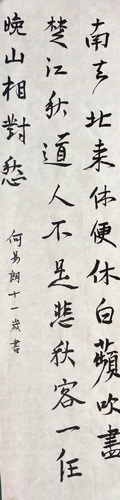 南去北来休便休白蘋吹盡
楚江秋道人不是悲秋客一任
晚山相對愁
何易朗十一歲書